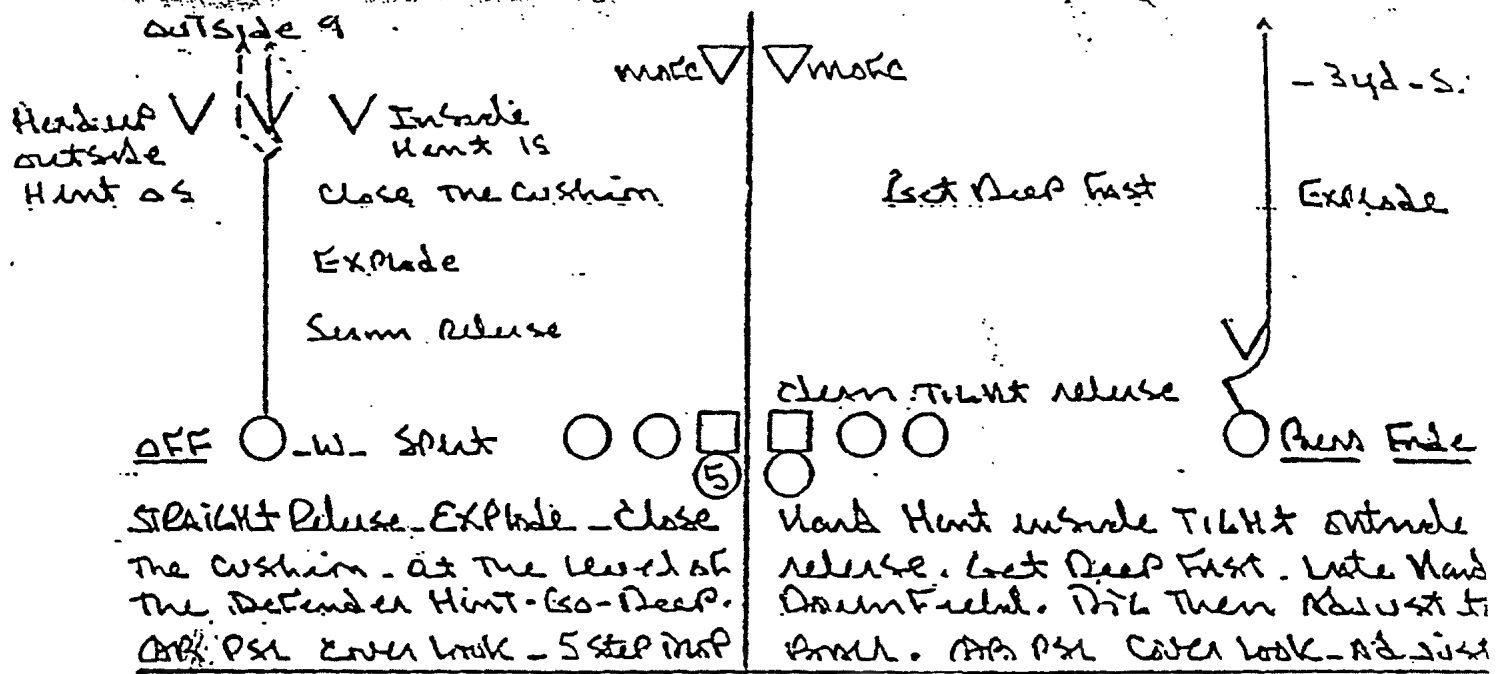 outside 9
mofc
Headup
outside
Hint os
Inside
Hint is
Close The Cushion
Explode
Seam Release
OFF
-W- Split
5
STRAIGHT Release - EXPlode - Close
The Cushion - at The Level of
The Defender Hint - Go - Deep.
PSL Cover Look - 5 STEP Drop
mofc
- 3yd - S.
Get Deep Fast
Explode
Clean TIGHT release
Press
Hard Hint inside TIGHT outside
release. Get Deep Fast. Late Hand
DownField. Then Adjust
PSL Cover Look - Adjust